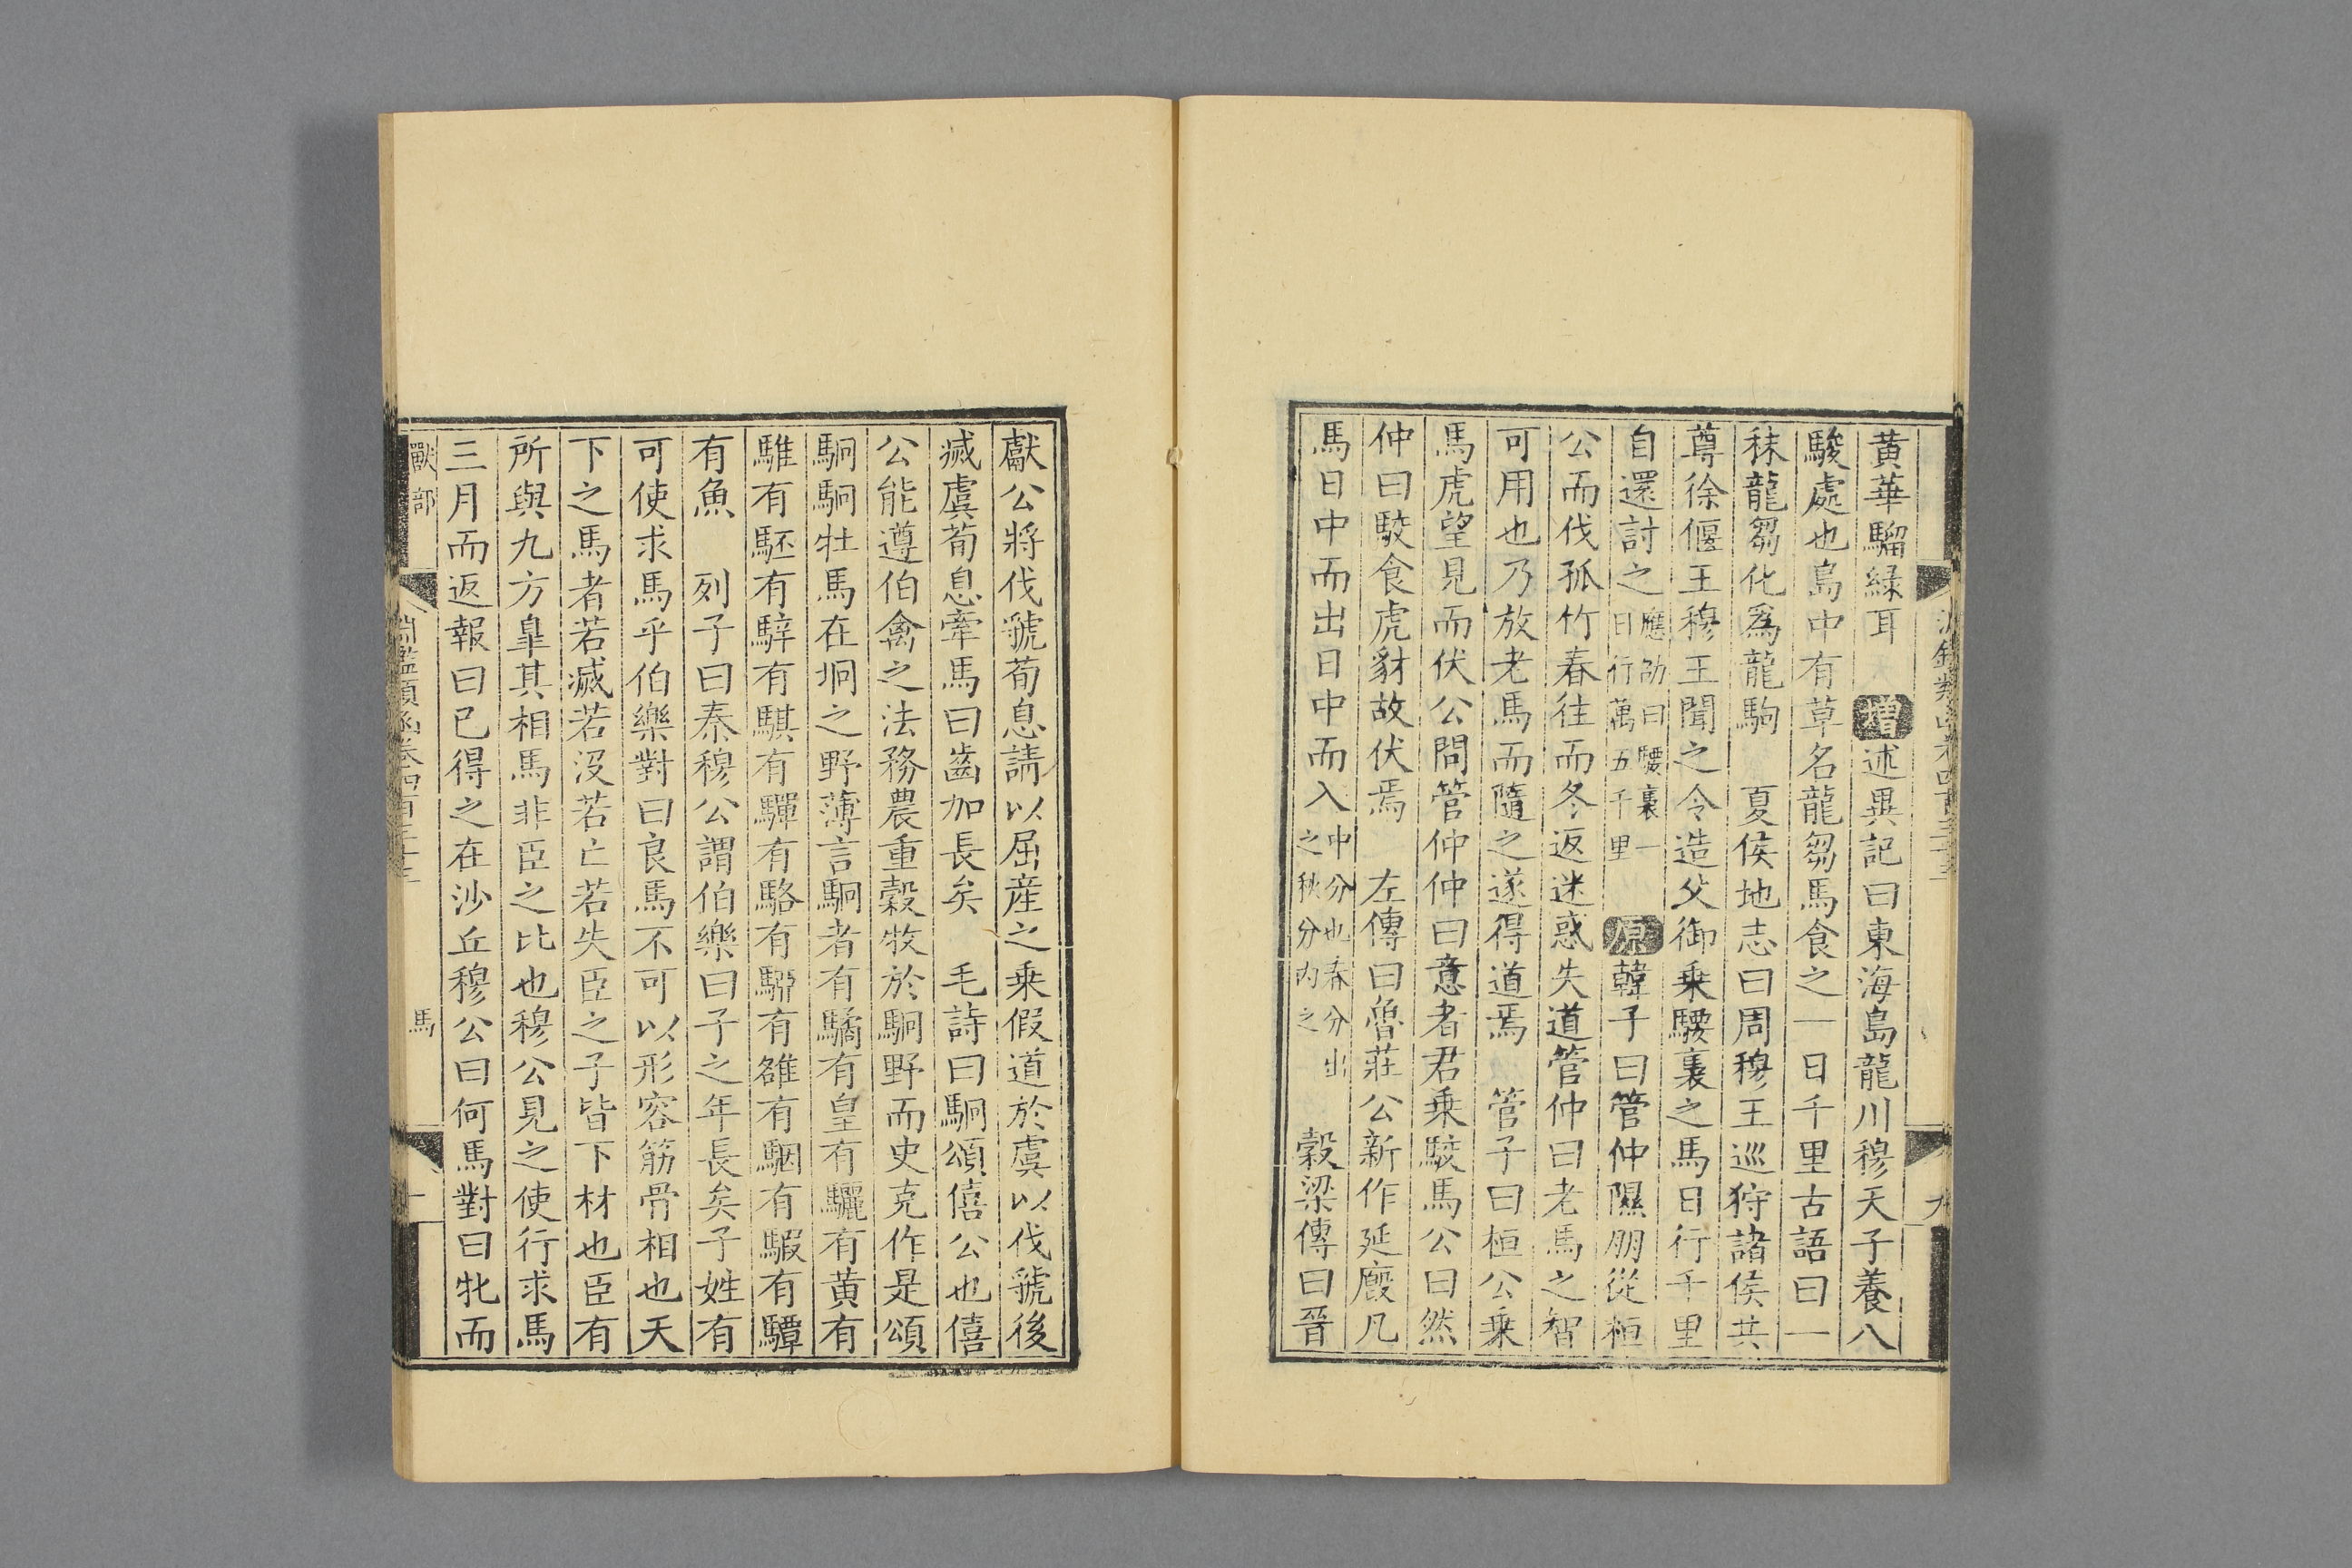 黃華騮綠耳 增 述異記曰東海島龍川穆天子養八
駿處也島中有草名龍芻馬食之一日千里古語曰一
秣龍芻化爲龍駒 夏侯地志曰周穆王巡狩諸侯共
尊徐偃王穆王聞之令造父御乗騕褭之馬日行千里
自還討之應劭曰騕褭一日行萬五千里 原 韓子曰管仲隰朋從桓
公而伐孤竹春往而冬返迷惑失道管仲曰老馬之智
可用也乃放老馬而隨之遂得道焉 管子曰桓公乗
馬虎望見而伏公問管仲仲曰意者君乗駮馬公曰然
仲曰駮食虎豺故伏焉 左傳曰魯莊公新作延廏凡
馬日中而出日中而入中分也春分出之秋分内之 穀梁傳曰晉
獻公將伐虢荀息請以屈産之乗假道於虞以伐虢後
滅虞荀息牽馬曰齒加長矣 毛詩曰駉頌僖公也僖
公能遵伯禽之法務農重穀牧於駉野而史克作是頌
駉駉牡馬在坰之野薄言駉者有驈有皇有驪有黃有
騅有駓有騂有騏有驒有駱有騮有雒有駰有騢有驔
有魚 列子曰秦穆公謂伯樂曰子之年長矣子姓有
可使求馬乎伯樂對曰良馬不可以形容筋骨相也天
下之馬者若滅若沒若亡若失臣之子皆下材也臣有
所與九方臯其相馬非臣之比也穆公見之使行求馬
三月而返報曰已得之在沙丘穆公曰何馬對曰牝而
獸部 淵鑑類函卷四百三十三 馬